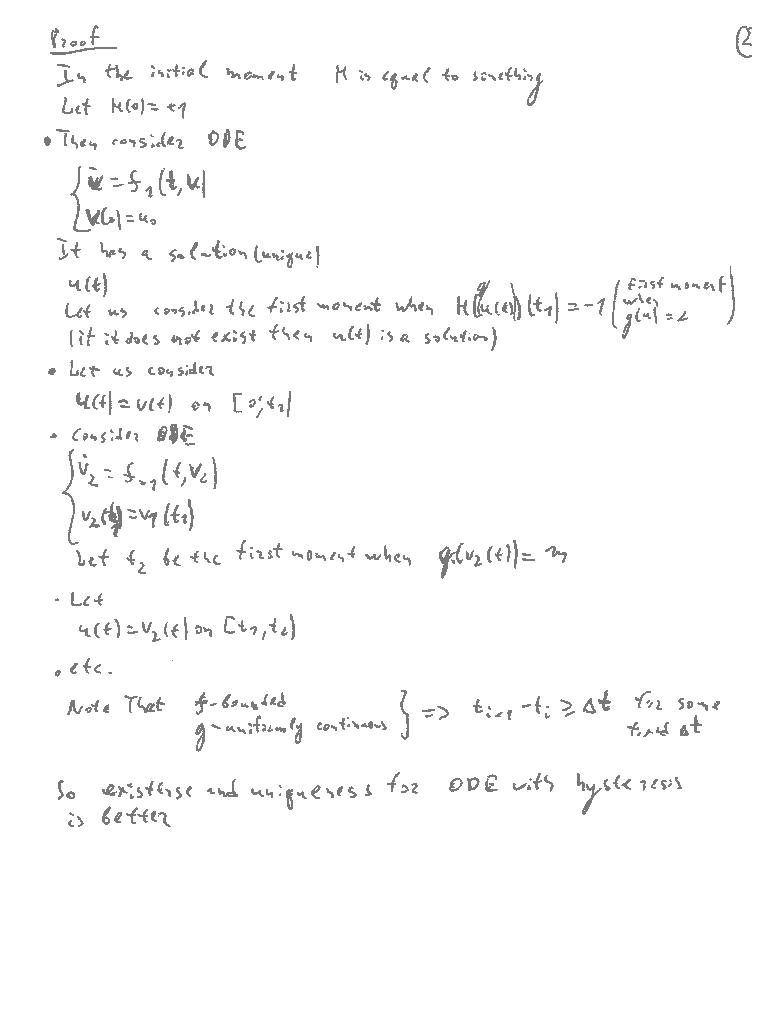 Proof
②
In the initial moment H is equal to something
Let H(0) = +1
• Then consider ODE
{ v̇ = f₁(t, v)
v(0) = u₀
It has a solution (unique)
u(t)
Let us consider the first moment when H(g(u(t)))(t₁) = -1 (first moment when g(u) = α)
(if it does not exist then u(t) is a solution)
• Let us consider
u(t) = v(t) on [0; t₁)
• Consider ODE
{ v̇₂ = f₋₁(t, v₂)
v₂(t₁) = v₁(t₁)
Let t₂ be the first moment when g(v₂(t)) =
• Let
u(t) = v₂(t) on [t₁, t₂)
• etc.
Note That f - bounded
g - uniformly continuous } => tᵢ₊₁ - tᵢ ≥ Δt for some
fixed Δt
So existense and uniqueness for ODE with hysteresis
is better